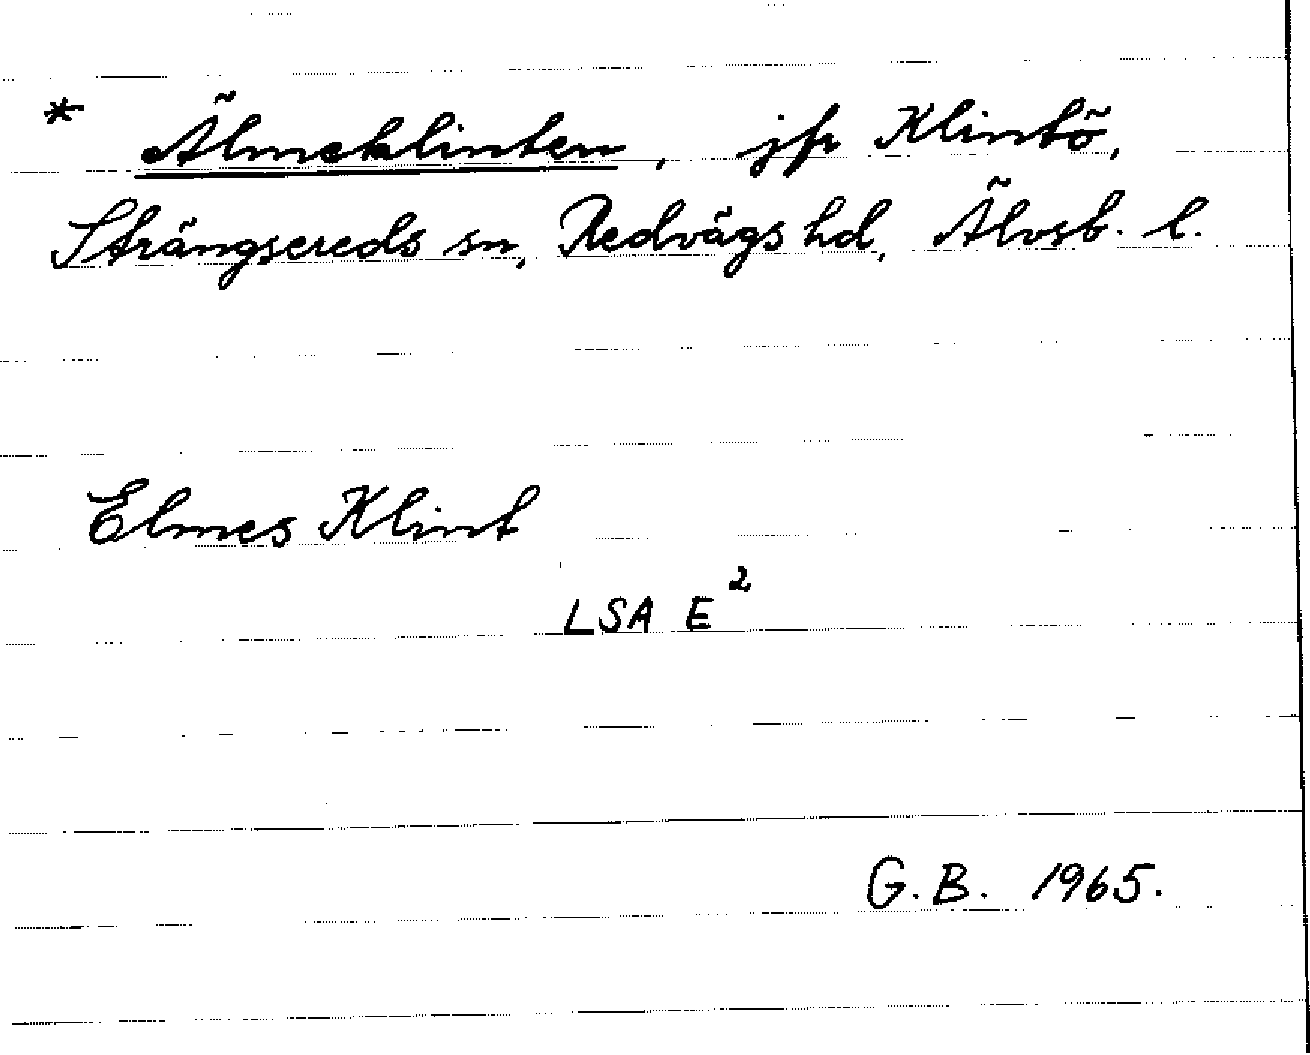 * Älmeklinten, jfr Klintö,
Strängsereds sn, Redvägs hd, Älvsb. l.
Elmes Klint
LSA E²
G.B. 1965.